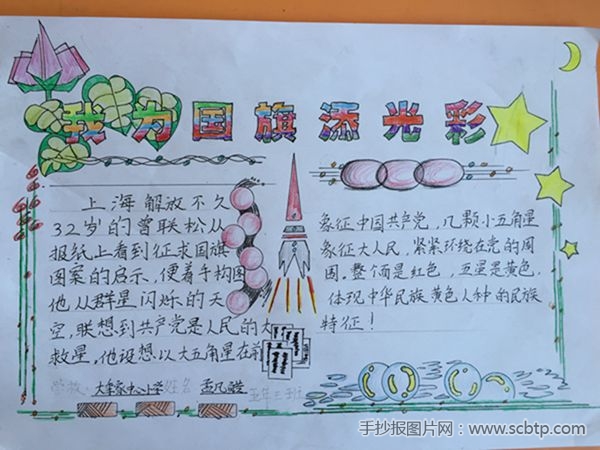 我为国旗添光彩
上海解放不久
32岁的曾联松从
报纸上看到征求国旗
图案的启示,便着手构图
他从群星闪烁的天
空,联想到共产党是人民的大
救星,他设想以大五角星在前
象征中国共产党,几颗小五角星
象征大人民,紧紧环绕在党的周
围。整个面是红色,五星是黄色,
体现中华民族黄色人种的民族
特征!
学校: 中心小学 姓名 孟凡 五年三班
手抄报图片网:www.scbtp.com